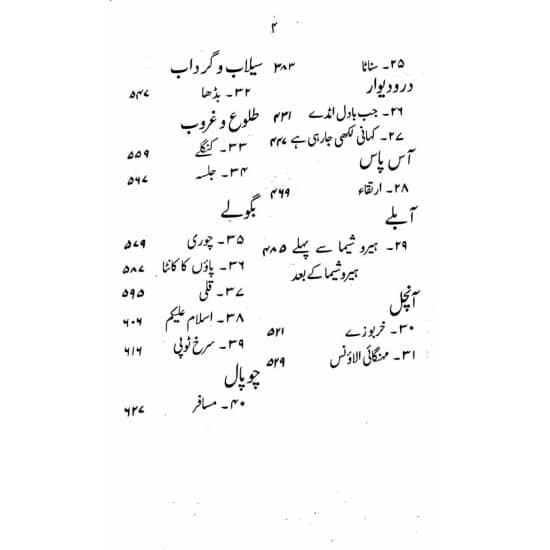 ۲
۲۵۔ سناٹا ۳۸۳
درودیوار
۲۶۔ جب بادل امڈے ۴۳۱
۲۷۔ کہانی لکھی جارہی ہے ۴۴۷
آس پاس
۲۸۔ ارتقاء ۴۶۹
آبلے
۲۹۔ ہیروشیما سے پہلے ۴۸۵
ہیروشیما کے بعد
آنچل
۳۰۔ خربوزے ۵۲۱
۳۱۔ مہنگائی الاؤنس ۵۲۹
سیلاب و گرداب
۳۲۔ بڈھا ۵۴۷
طلوع و غروب
۳۳۔ کنگلے ۵۵۹
۳۴۔ جلسہ ۵۶۷
بگولے
۳۵۔ چوری ۵۷۹
۳۶۔ پاؤں کا کانٹا ۵۸۷
۳۷۔ قلی ۵۹۵
۳۸۔ اسلام علیکم ۶۰۶
۳۹۔ سرخ ٹوپی ۶۱۶
چوپال
۴۰۔ مسافر ۶۲۷